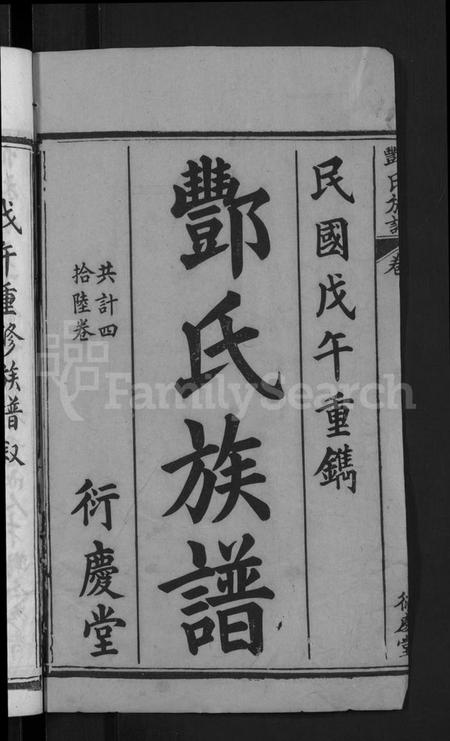 酆氏族譜 卷
衍慶堂
民國戊午重鐫
酆氏族譜
共計四
拾陸卷
衍慶堂
戊午重修族譜叙
FamilySearch